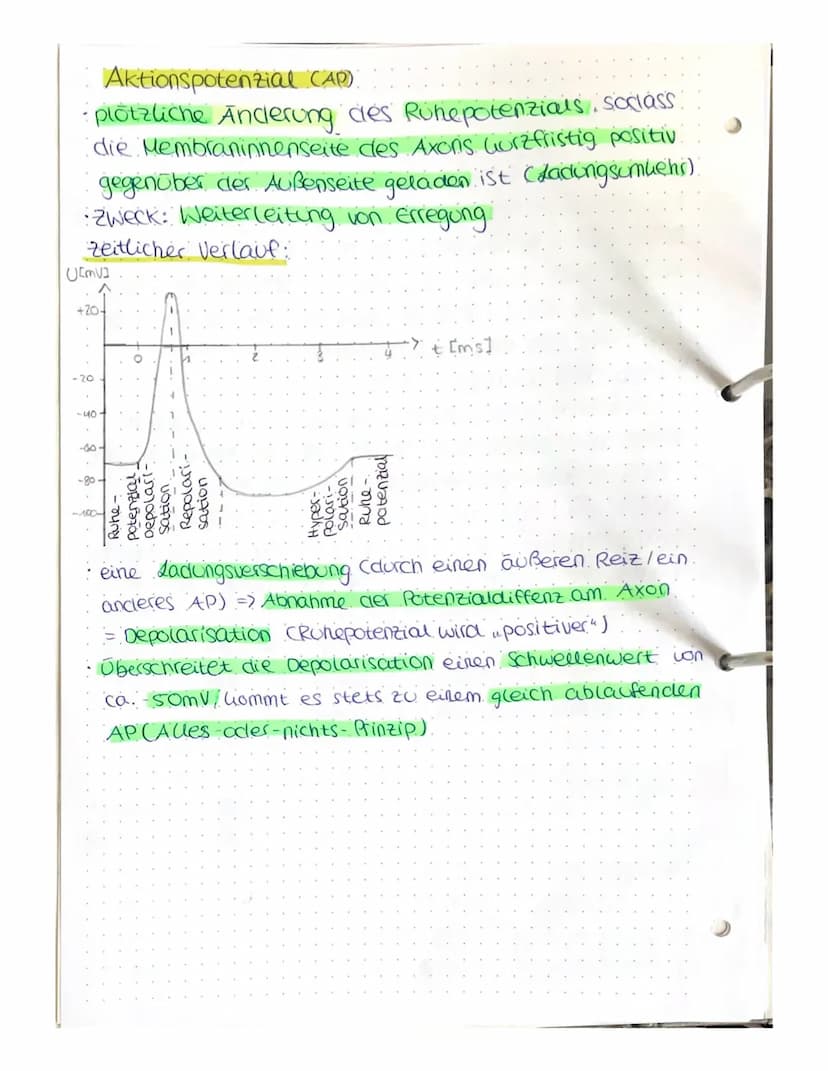 Aktionspotenzial (AP)
· plötzliche Änderung des Ruhepotenzials, sodass
die Membraninnenseite des Axons kurzfristig positiv
gegenüber der Außenseite geladen ist (Ladungsumkehr)
· Zweck: Weiterleitung von Erregung
zeitlicher Verlauf:
U[mV]
+20
t [ms]
0 1 2 3 4
-20
-40
-60
-80
-100
Ruhe-
potenzial
Depolari-
sation
Repolari-
sation
Hyper-
polari-
sation
Ruhe-
potenzial
· eine Ladungsverschiebung (durch einen äußeren Reiz/ein
anderes AP) => Abnahme der Potenzialdiffenz am Axon
= Depolarisation (Ruhepotenzial wird „positiver“)
· Überschreitet die Depolarisation einen Schwellenwert von
ca. 50mV, kommt es stets zu einem gleich ablaufenden
AP (Alles-oder-nichts-Prinzip)